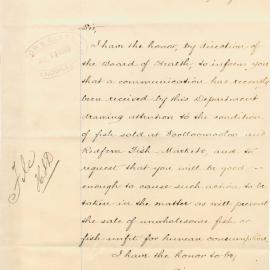 Sir,
I have the honor, by direction of
the Board of Health, to inform you
that a communication has recently
been received by this Department
drawing attention to the condition
of fish sold at Woolloomooloo and
Redfern Fish-Markets, and to
request that you will be good
enough to cause such action to be
taken in the matter as will prevent
the sale of unwholesome fish or
fish unfit for human consumption.
I have the honor to be,
File